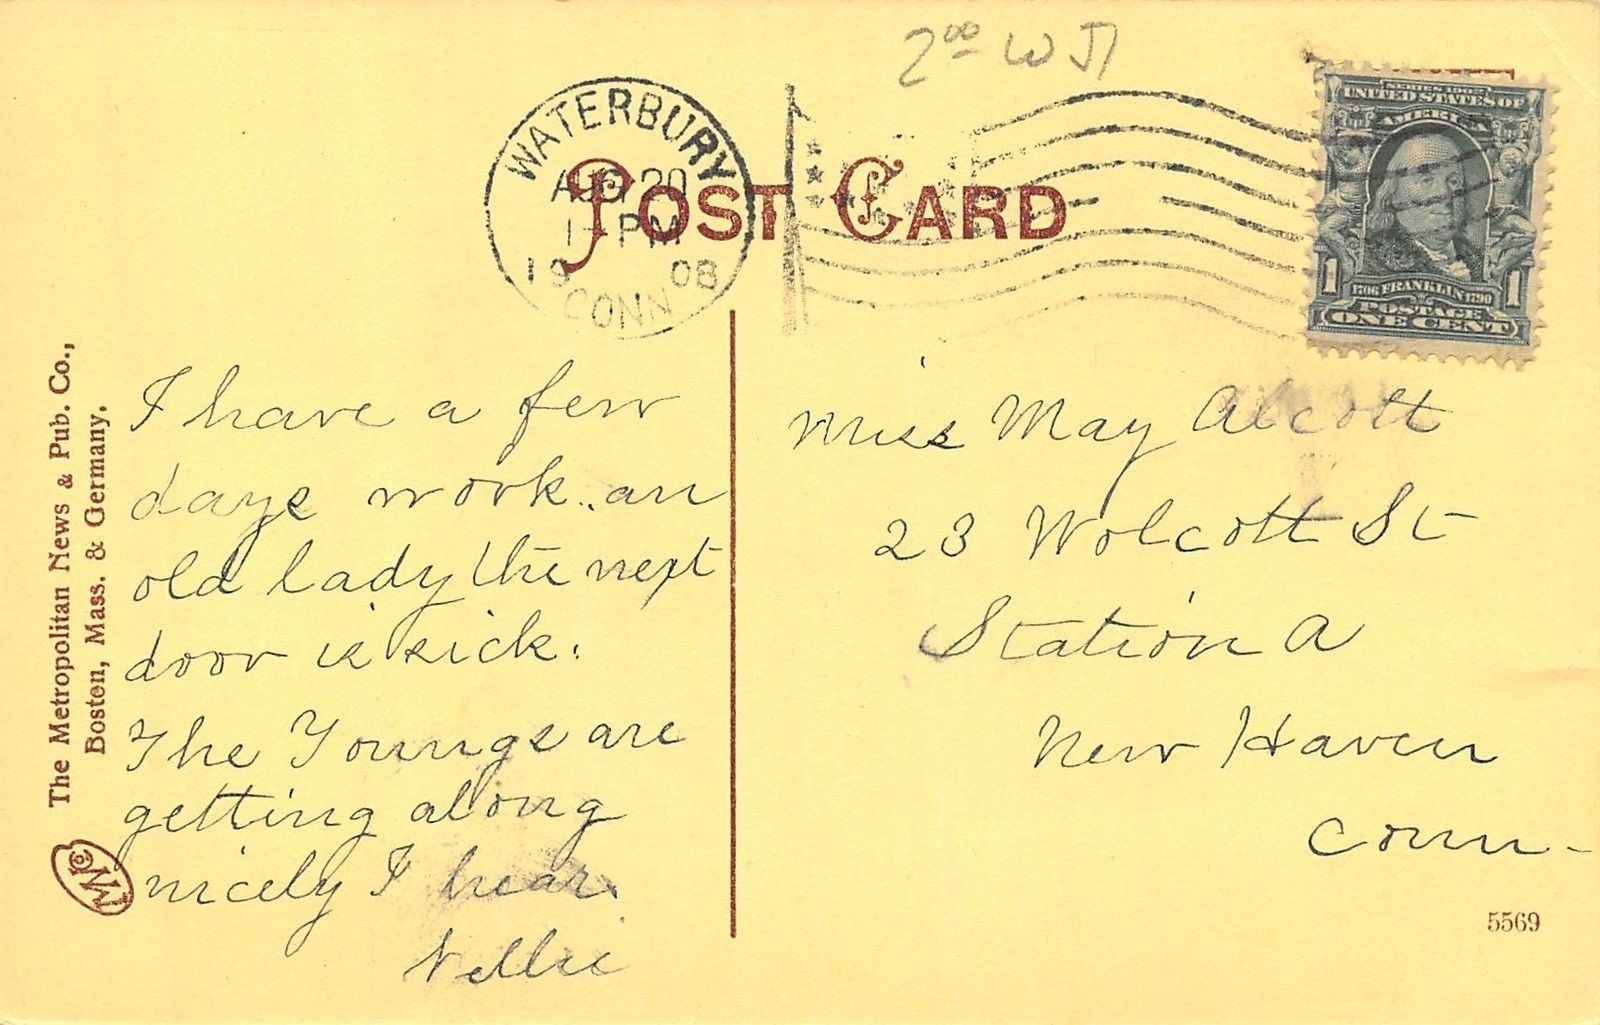 2⁰⁰ WJ
WATERBURY
AUG 20
1 - PM
1908
CONN
POST CARD
SERIES 1902
UNITED STATES OF
AMERICA
1 1
1706 FRANKLIN 1790
POSTAGE
ONE CENT
The Metropolitan News & Pub. Co.,
Boston, Mass. & Germany.
I have a few
days work. an
old lady the next
door is sick.
The Youngs are
getting along
nicely I hear.
Nellie
Miss May Alcott
23 Wolcott St
Station A
New Haven
Conn-
5569